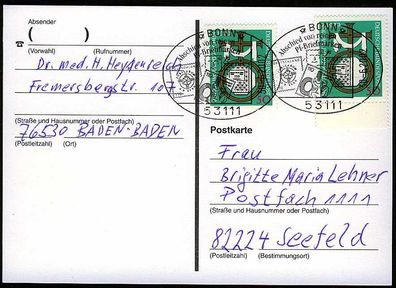 Absender
(          )
(Vorwahl) (Rufnummer)
Dr. med. H. Heydenreich
Fremersbergstr. 107
(Straße und Hausnummer oder Postfach)
76530 BADEN-BADEN
(Postleitzahl) (Ort)
BONN
Abschied von
Pf-Briefmarken
53111
50
BONN
Abschied von
Pf-Briefmarken
53111
Postkarte
Frau
Brigitte Maria Lehner
Postfach 1111
(Straße und Hausnummer oder Postfach)
82224 Seefeld
(Postleitzahl) (Bestimmungsort)